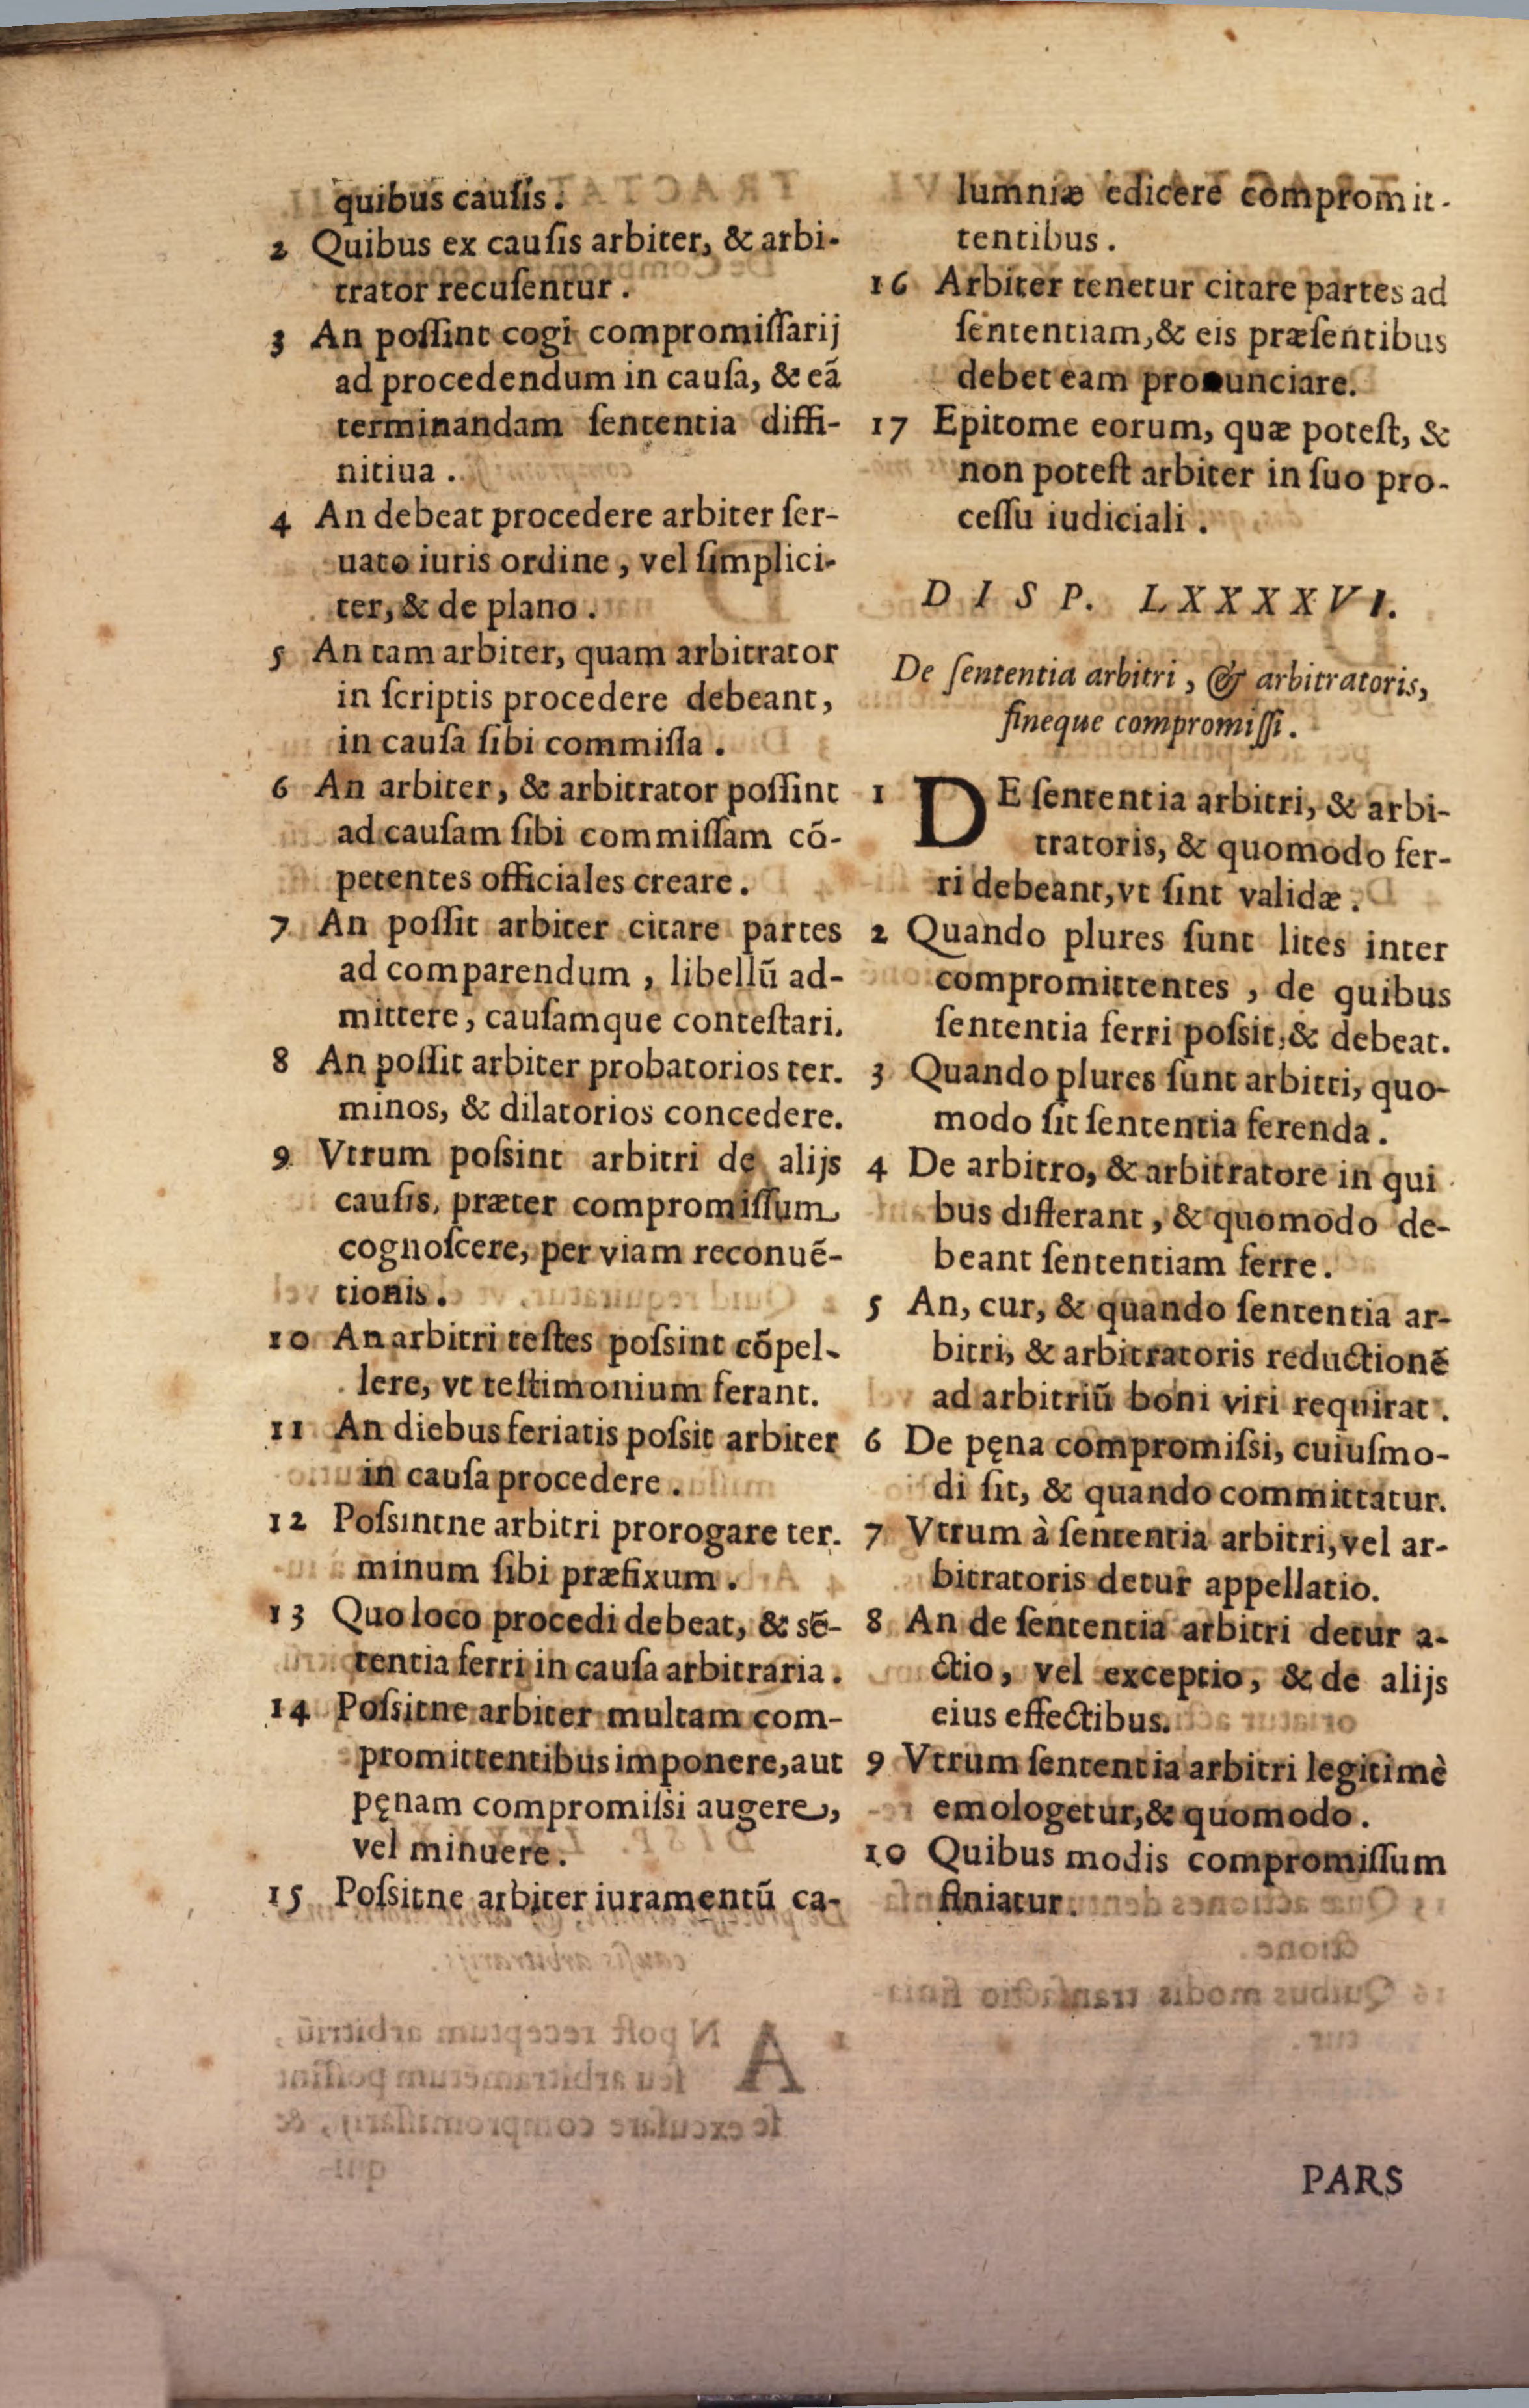 quibus cauſis.
2 Quibus ex cauſis arbiter, & arbi-
trator recuſentur.
3 An poſſint cogi compromiſſarij
ad procedendum in cauſa, & eã
terminandam ſententia diffi-
nitiua.
4 An debeat procedere arbiter ſer-
uato iuris ordine, vel ſimplici-
ter, & de plano.
5 An tam arbiter, quam arbitrator
in ſcriptis procedere debeant,
in cauſa ſibi commiſſa.
6 An arbiter, & arbitrator poſſint
ad cauſam ſibi commiſſam cõ-
petentes officiales creare.
7 An poſſit arbiter citare partes
ad comparendum, libellũ ad-
mittere, cauſamque conteſtari.
8 An poſſit arbiter probatorios ter.
minos, & dilatorios concedere.
9 Vtrum poſsint arbitri de alijs
cauſis, præter compromiſſum
cognoſcere, per viam reconuẽ-
tionis.
10 An arbitri teſtes poſsint cõpel-
lere, vt teſtimonium ferant.
11 An diebus feriatis poſsit arbiter
in cauſa procedere.
12 Poſsintne arbitri prorogare ter.
minum ſibi præfixum.
13 Quo loco procedi debeat, & sẽ-
tentia ferri in cauſa arbitraria.
14 Poſsitne arbiter multam com-
promittentibus imponere, aut
pęnam compromiſsi augere,
vel minuere.
15 Poſsitne arbiter iuramentũ ca-
lumniæ edicere compromit-
tentibus.
16 Arbiter tenetur citare partes ad
ſententiam, & eis præſentibus
debet eam pronunciare.
17 Epitome eorum, quæ poteſt, &
non poteſt arbiter in ſuo pro-
ceſſu iudiciali.
DISP. LXXXXVI.
De ſententia arbitri, & arbitratoris,
fineque compromiſſi.
1 DE ſententia arbitri, & arbi-
tratoris, & quomodo fer-
ri debeant, vt ſint validæ.
2 Quando plures ſunt lites inter
compromittentes, de quibus
ſententia ferri poſsit, & debeat.
3 Quando plures ſunt arbitri, quo-
modo ſit ſententia ferenda.
4 De arbitro, & arbitratore in qui
bus differant, & quomodo de-
beant ſententiam ferre.
5 An, cur, & quando ſententia ar-
bitri, & arbitratoris reductionẽ
ad arbitriũ boni viri requirat.
6 De pęna compromiſsi, cuiuſmo-
di ſit, & quando committatur.
7 Vtrum à ſententia arbitri, vel ar-
bitratoris detur appellatio.
8 An de ſententia arbitri detur a-
ctio, vel exceptio, & de alijs
eius effectibus.
9 Vtrum ſententia arbitri legitimè
emologetur, & quomodo.
10 Quibus modis compromiſſum
finiatur.
PARS